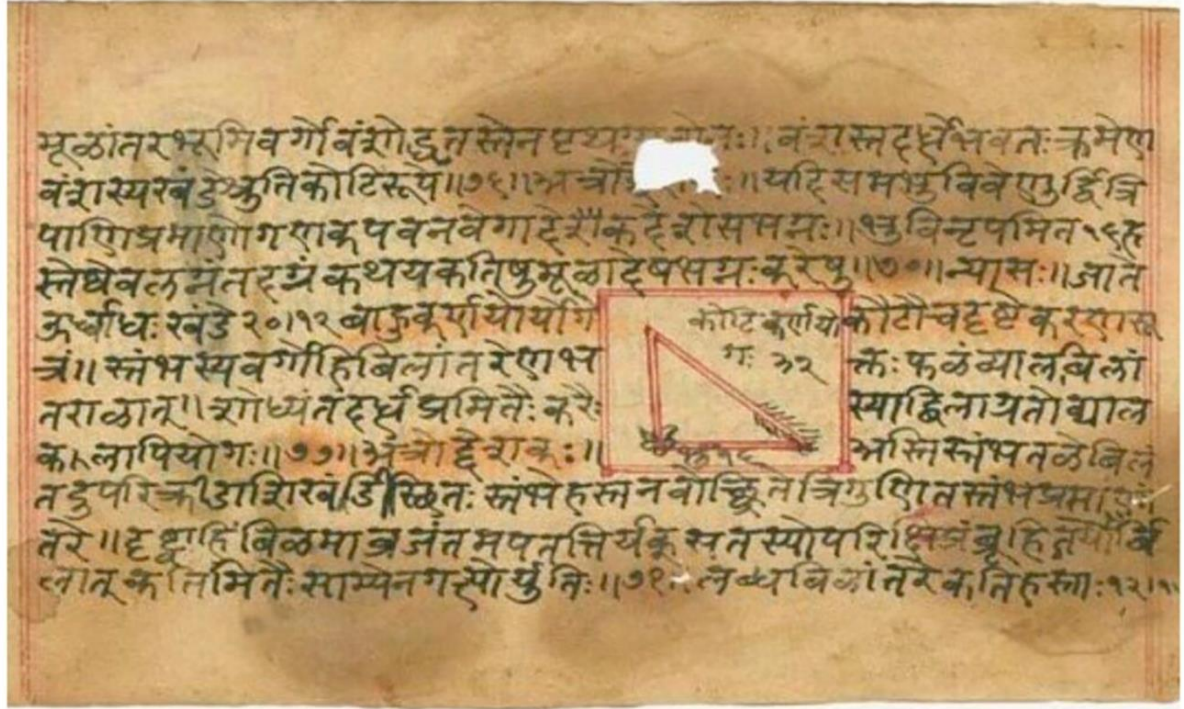 मूळांतरभूमिवर्गो वंशोद्धृतस्तेन पृथ वंशस्तदर्धे भवतः क्रमेण
वंशस्य खंडे श्रुतिकोटिरूपे ॥७६॥ अत्रो ॥ यदि समभुवि वेणुर्द्वित्रि
पाणिप्रमाणो गणक पवनवेगादेशैकदेशे स भग्नः ॥ भुवि नृपमित १६ ह
स्तेष्वेव लग्नं तदग्रं कथय कतिषु मूळादेष भग्नः करेषु ॥७०॥ न्यासः ॥ जाते
ऊर्ध्वाधः खंडे २०।१२ बाहुकर्णयोर्योगे
कोटिकर्णयो
गः ३२
१६
कोटौ च दृष्टे करणसू
त्रं ॥ स्तंभस्य वर्गोहिबिलांतरेण भ
क्तः फळं व्यालबिलां
तराळात् ॥ शोध्यं तदर्धप्रमितैः करैः
स्याद्बिलाग्रतो व्याल
कलापियोगः ॥७७॥ अत्रोद्देशकः ॥
अस्ति स्तंभतळे बिलं
तदुपरि क्रीडाशिखंडी स्थितः स्तंभे हस्तनवोच्छ्रिते त्रिगुणितस्तंभप्रमाणां
तरे ॥ दृष्ट्वाहिं बिळमाव्रजंतमपतत्तिर्यक् स तस्योपरि क्षिप्रं ब्रूहि तयोर्बि
लात् कतिमितैः साम्येन गत्योर्युतिः ॥७१ लब्धबिळांतरे कतिहस्ताः १२।